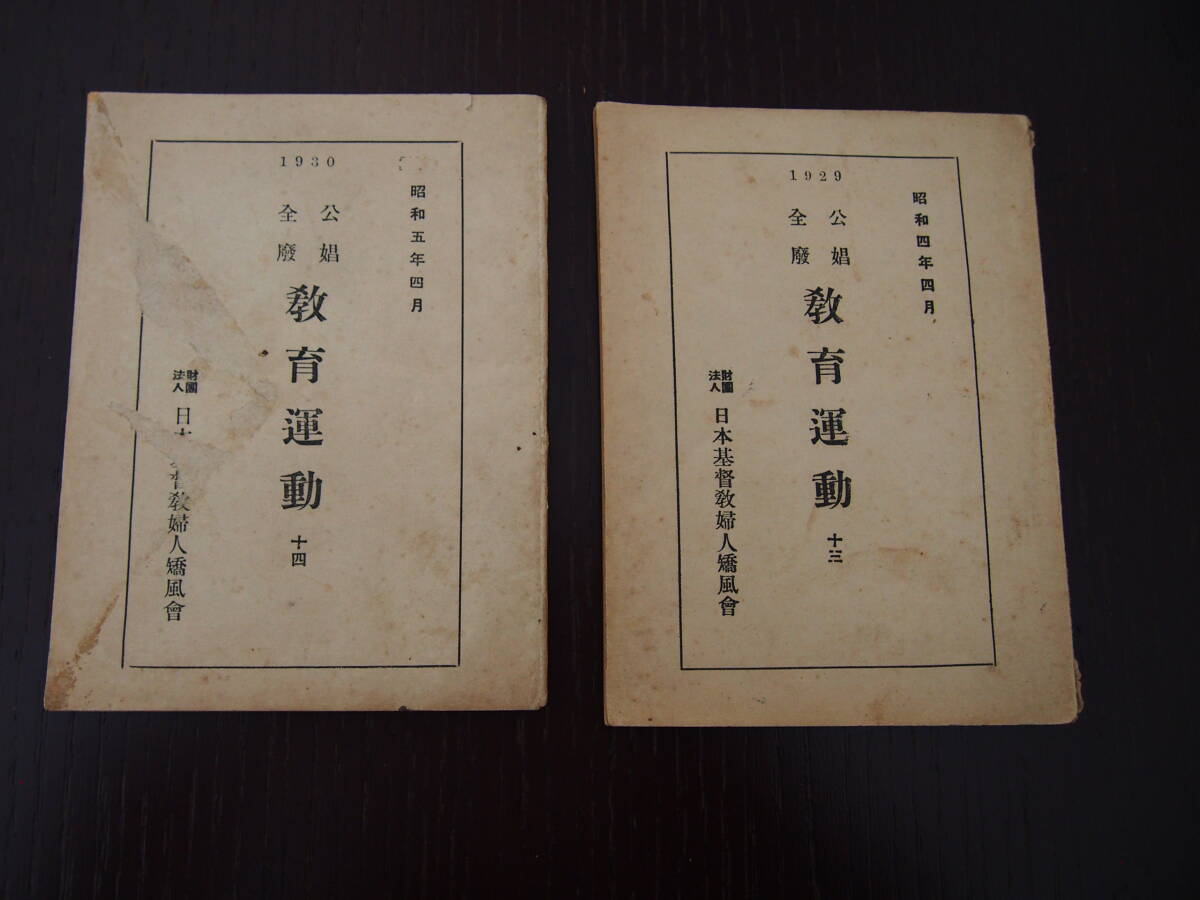 1930
昭和五年四月
公娼
全廢
敎育運動
十四
財團
法人
日 督敎婦人矯風會
1929
昭和四年四月
公娼
全廢
敎育運動
十三
財團
法人
日本基督敎婦人矯風會